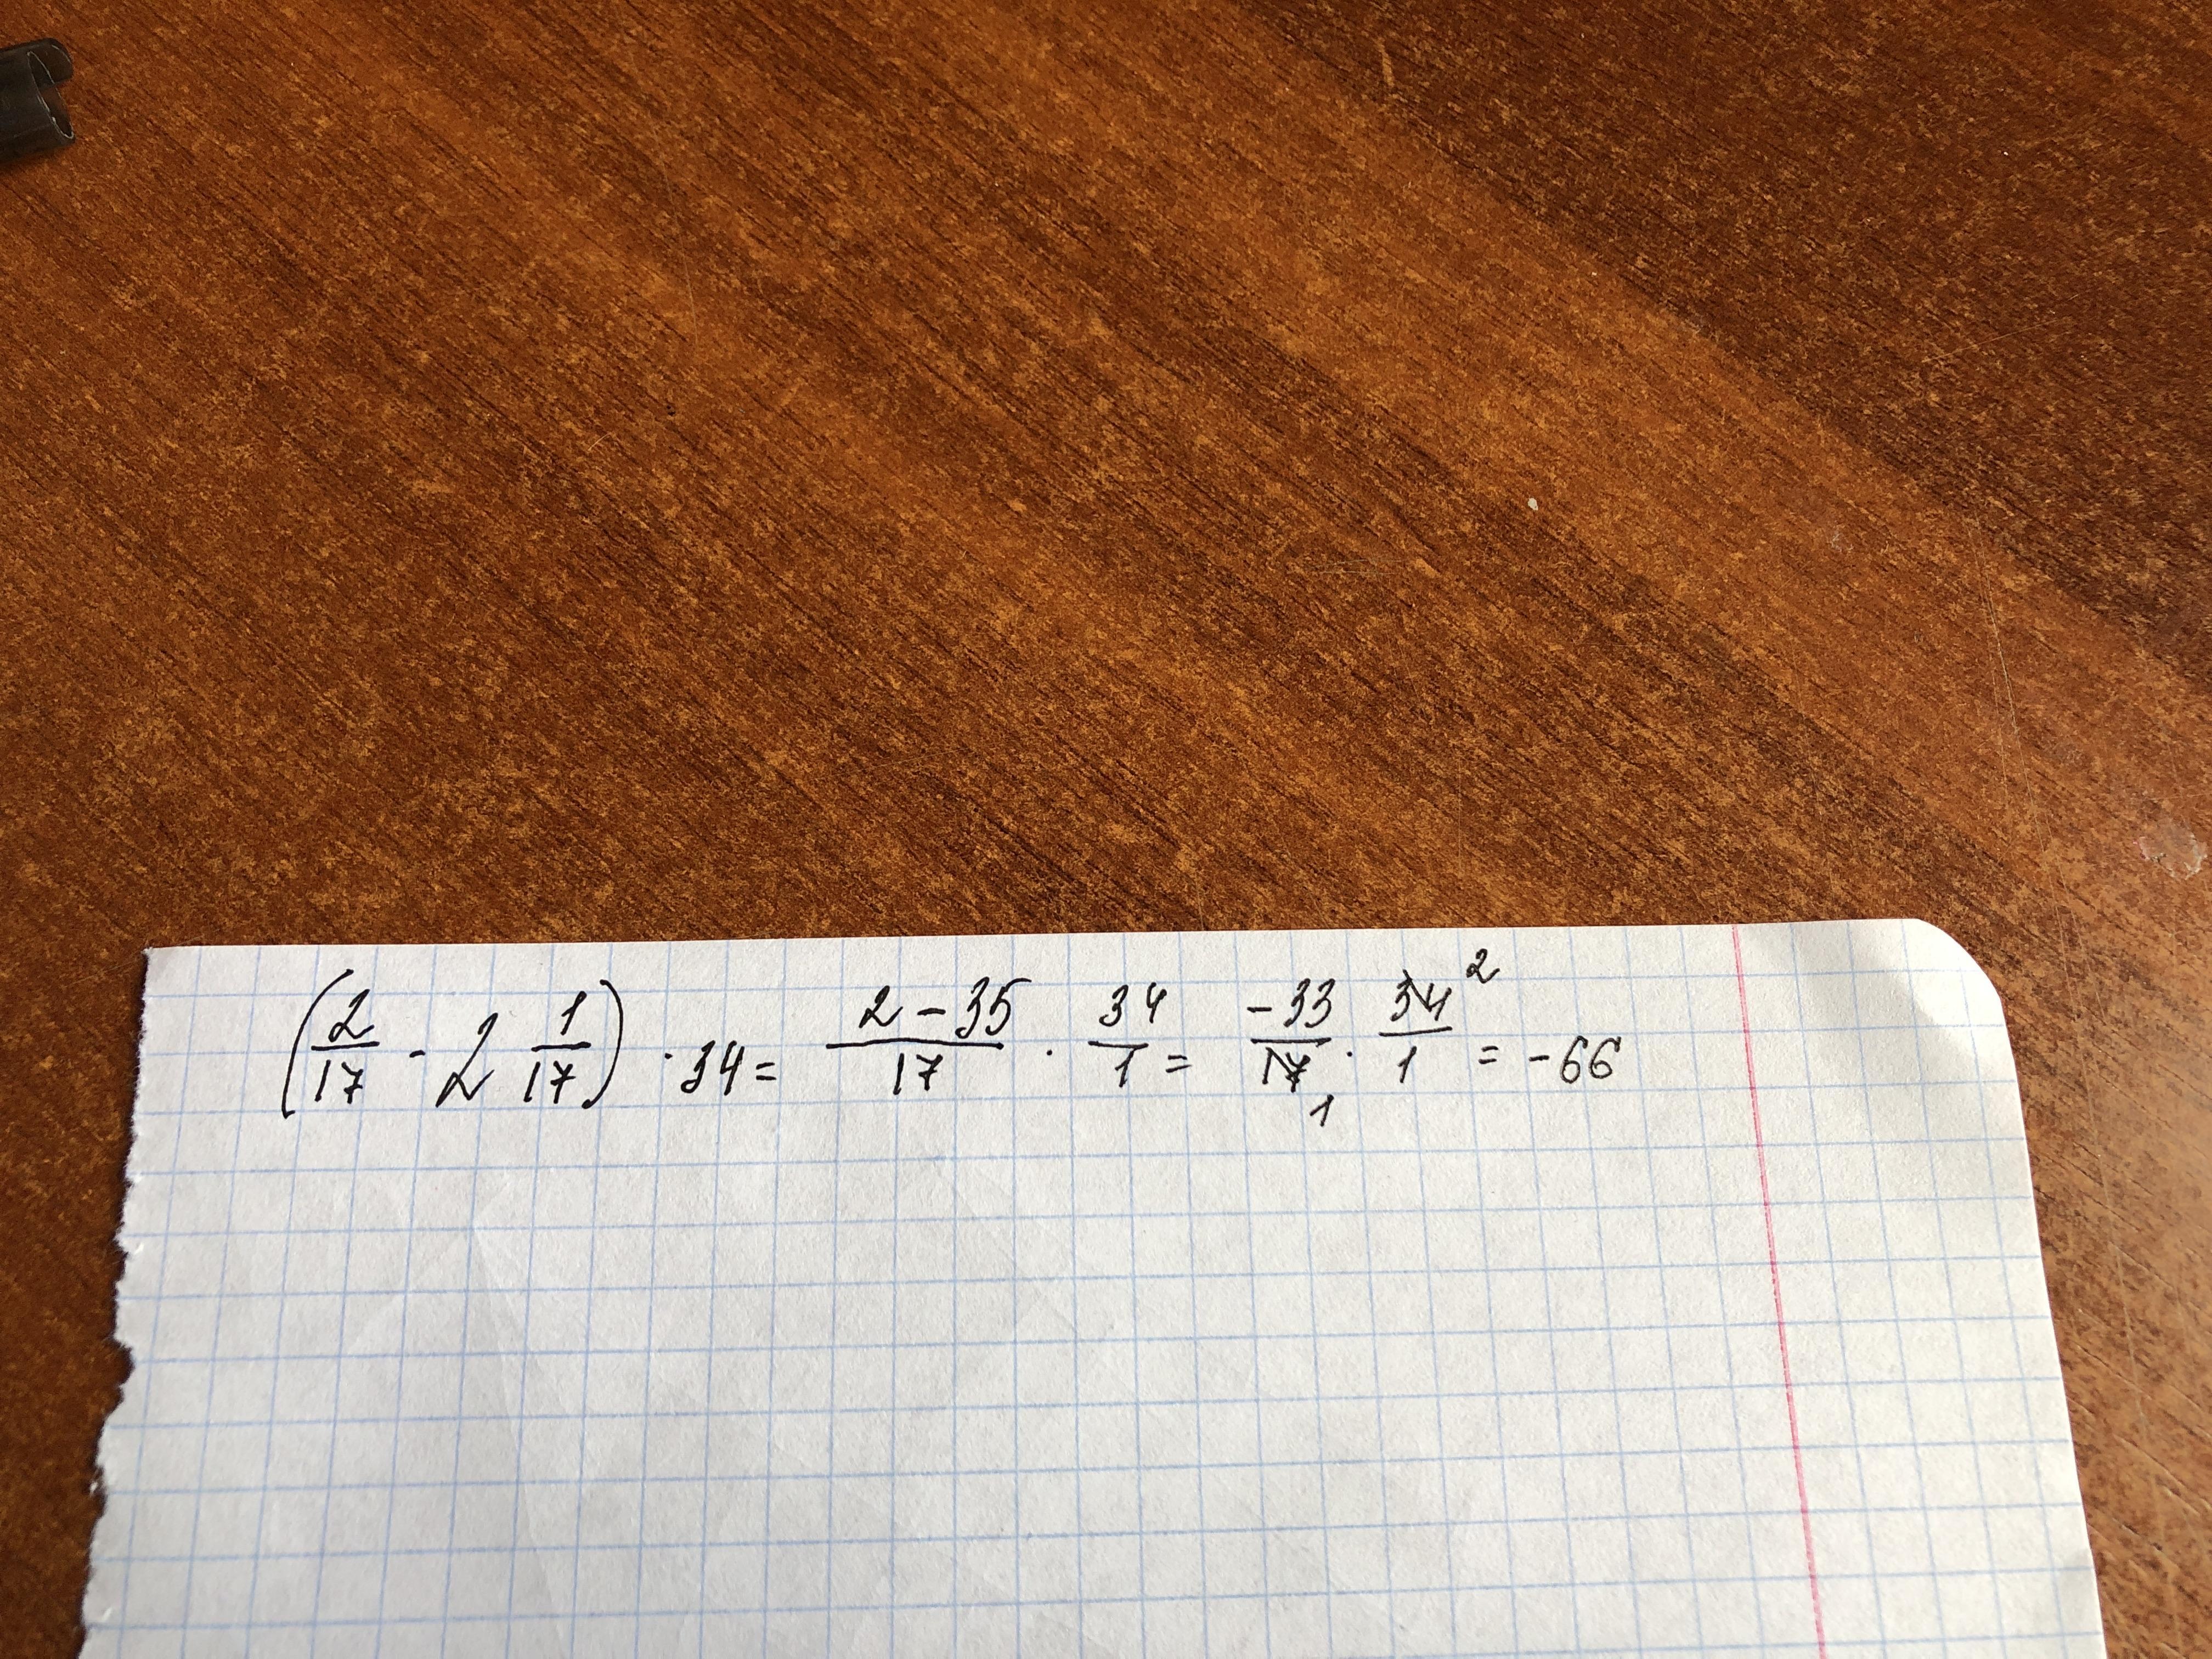 (2/17 - 2 1/17) · 34 = (2 - 35)/17 · 34/1 = -33/17 1 · 34/1 2 = -66